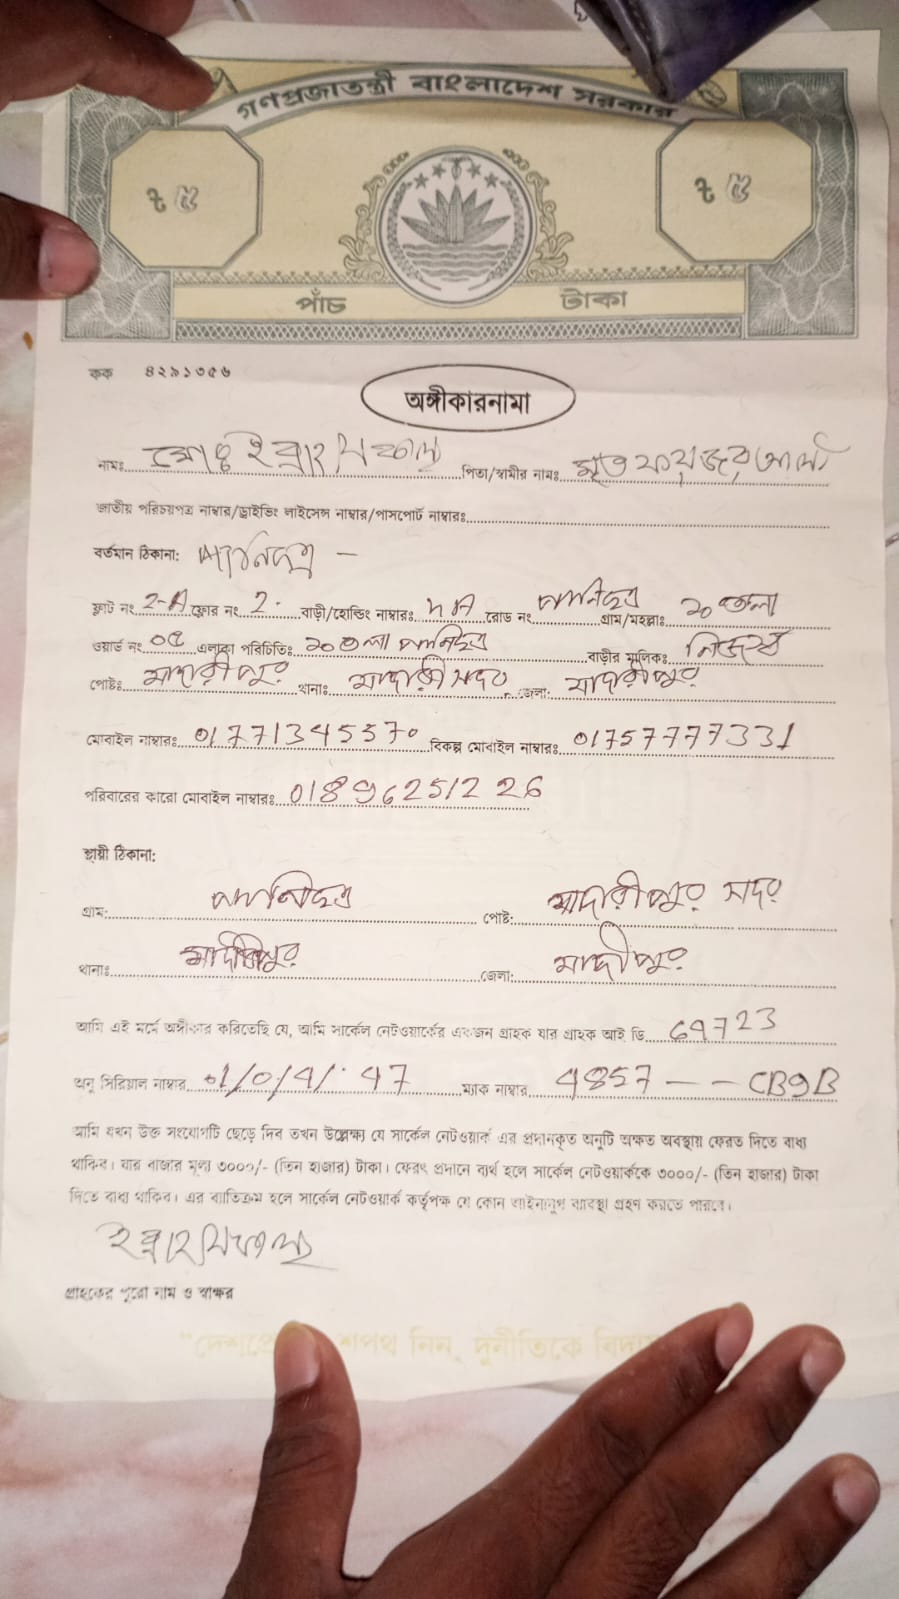 গণপ্রজাতন্ত্রী বাংলাদেশ সরকার
৳ ৫ ৳ ৫
পাঁচ টাকা
কক ৪২৯১৩৫৬
অঙ্গীকারনামা
নামঃ মোঃ পিতা/স্বামীর নামঃ মৃত
জাতীয় পরিচয়পত্র নাম্বার/ড্রাইভিং লাইসেন্স নাম্বার/পাসপোর্ট নাম্বারঃ
বর্তমান ঠিকানা: পানিছত্র –
ফ্লাট নং 2-A ফ্লোর নং 2. বাড়ী/হোল্ডিং নাম্বারঃ রোড নং পানিছত্র গ্রাম/মহল্লাঃ ১০ তলা
ওয়ার্ড নং ০৫ এলাকা পরিচিতিঃ ১০ তলা পানিছত্র বাড়ীর মালিকঃ নিজস্ব
পোষ্টঃ মাদারীপুর থানাঃ মাদারীপুর সদর জেলা: মাদারীপুর
মোবাইল নাম্বারঃ 01771345570 বিকল্প মোবাইল নাম্বারঃ 01757777331
পরিবারের কারো মোবাইল নাম্বারঃ 01896251226
স্থায়ী ঠিকানা:
গ্রাম: পানিছত্র পোষ্ট: মাদারীপুর সদর
থানাঃ মাদারীপুর জেলা: মাদারীপুর
আমি এই মর্মে অঙ্গীকার করিতেছি যে, আমি সার্কেল নেটওয়ার্কের একজন গ্রাহক যার গ্রাহক আই ডি 69723
অনু সিরিয়াল নাম্বার ম্যাক নাম্বার 4857 – – CB9B
আমি যখন উক্ত সংযোগটি ছেড়ে দিব তখন উল্লেখ্য যে সার্কেল নেটওয়ার্ক এর প্রদানকৃত অনুটি অক্ষত অবস্থায় ফেরত দিতে বাধ্য
থাকিব। যার বাজার মূল্য ৩০০০/- (তিন হাজার) টাকা। ফেরৎ প্রদানে ব্যর্থ হলে সার্কেল নেটওয়ার্ককে ৩০০০/- (তিন হাজার) টাকা
দিতে বাধ্য থাকিব। এর ব্যতিক্রম হলে সার্কেল নেটওয়ার্ক কর্তৃপক্ষ যে কোন আইনানুগ ব্যবস্থা গ্রহণ করতে পারবে।
গ্রাহকের পুরো নাম ও স্বাক্ষর
শপথ নিন, দুর্নীতিকে